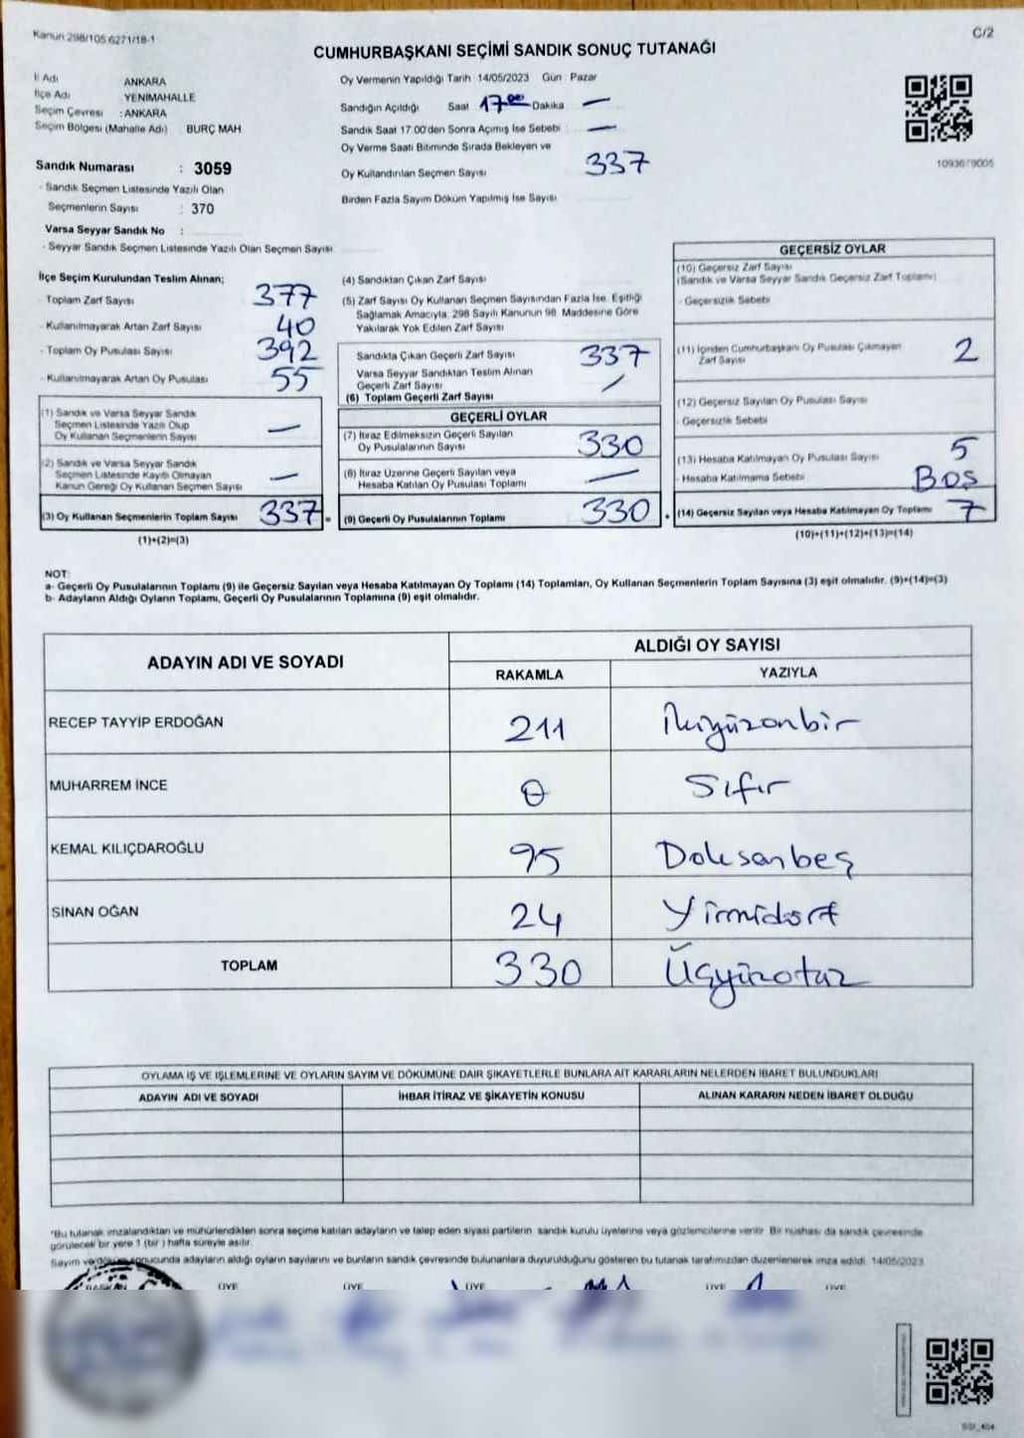 Kanun 298/105 6271/18-1
C/2
CUMHURBAŞKANI SEÇİMİ SANDIK SONUÇ TUTANAĞI
İl Adı ANKARA
İlçe Adı YENİMAHALLE
Seçim Çevresi : ANKARA
Seçim Bölgesi (Mahalle Adı) BURÇ MAH
Oy Vermenin Yapıldığı Tarih 14/05/2023 Gün : Pazar
Sandığın Açıldığı Saat 17.00 Dakika —
Sandık Saat 17.00'den Sonra Açımış İse Sebebi —
Oy Verme Saati Bitiminde Sırada Bekleyen ve
Oy Kullandırılan Seçmen Sayısı 337
Birden Fazla Sayım Döküm Yapılmış İse Sayısı
Sandık Numarası : 3059
- Sandık Seçmen Listesinde Yazılı Olan
Seçmenlerin Sayısı : 370
Varsa Seyyar Sandık No :
- Seyyar Sandık Seçmen Listesinde Yazılı Olan Seçmen Sayısı
İlçe Seçim Kurulundan Teslim Alınan;
Toplam Zarf Sayısı 377
- Kullanılmayarak Artan Zarf Sayısı 40
- Toplam Oy Pusulası Sayısı 392
- Kullanılmayarak Artan Oy Pusulası 55
(1) Sandık ve Varsa Seyyar Sandık
Seçmen Listesinde Yazılı Olup
Oy Kullanan Seçmenlerin Sayısı —
(2) Sandık ve Varsa Seyyar Sandık
Seçmen Listesinde Kayıtlı Olmayan
Kanun Gereği Oy Kullanan Seçmen Sayısı —
(3) Oy Kullanan Seçmenlerin Toplam Sayısı 337
(1)+(2)=(3)
(4) Sandıktan Çıkan Zarf Sayısı
(5) Zarf Sayısı Oy Kullanan Seçmen Sayısından Fazla İse, Eşitliği
Sağlamak Amacıyla, 298 Sayılı Kanunun 98. Maddesine Göre
Yakılarak Yok Edilen Zarf Sayısı
Sandıkta Çıkan Geçerli Zarf Sayısı 337
Varsa Seyyar Sandıktan Teslim Alınan
Geçerli Zarf Sayısı /
(6) Toplam Geçerli Zarf Sayısı
GEÇERLİ OYLAR
(7) İtiraz Edilmeksizin Geçerli Sayılan
Oy Pusulalarının Sayısı 330
(8) İtiraz Üzerine Geçerli Sayılan veya
Hesaba Katılan Oy Pusulası Toplamı —
(9) Geçerli Oy Pusulalarının Toplamı 330
GEÇERSİZ OYLAR
(10) Geçersiz Zarf Sayısı
(Sandık ve Varsa Seyyar Sandık Geçersiz Zarf Toplamı)
- Geçersizlik Sebebi
(11) İçinden Cumhurbaşkanı Oy Pusulası Çıkmayan
Zarf Sayısı 2
(12) Geçersiz Sayılan Oy Pusulası Sayısı
- Geçersizlik Sebebi
(13) Hesaba Katılmayan Oy Pusulası Sayısı 5
- Hesaba Katılmama Sebebi Boş
(14) Geçersiz Sayılan veya Hesaba Katılmayan Oy Toplamı 7
(10)+(11)+(12)+(13)=(14)
NOT:
a- Geçerli Oy Pusulalarının Toplamı (9) ile Geçersiz Sayılan veya Hesaba Katılmayan Oy Toplamı (14) Toplamları, Oy Kullanan Seçmenlerin Toplam Sayısına (3) eşit olmalıdır. (9)+(14)=(3)
b- Adayların Aldığı Oyların Toplamı, Geçerli Oy Pusulalarının Toplamına (9) eşit olmalıdır.
ADAYIN ADI VE SOYADI ALDIĞI OY SAYISI
RAKAMLA YAZIYLA
RECEP TAYYİP ERDOĞAN 211 İkiyüzonbir
MUHARREM İNCE 0 Sıfır
KEMAL KILIÇDAROĞLU 95 Doksanbeş
SİNAN OĞAN 24 Yirmidört
TOPLAM 330 Üçyüzotuz
OYLAMA İŞ VE İŞLEMLERİNE VE OYLARIN SAYIM VE DÖKÜMÜNE DAİR ŞİKAYETLERLE BUNLARA AİT KARARLARIN NELERDEN İBARET BULUNDUKLARI
ADAYIN ADI VE SOYADI İHBAR İTİRAZ VE ŞİKAYETİN KONUSU ALINAN KARARIN NEDEN İBARET OLDUĞU
*Bu tutanak imzalandıktan ve mühürlendikten sonra seçime katılan adayların ve talep eden siyasi partilerin sandık kurulu üyelerine veya gözlemcilerine verilir. Bir nüshası da sandık çevresinde
görülecek bir yere 1 (bir) hafta süreyle asılır.
Sayım ve döküm sonucunda adayların aldığı oyların sayılarını ve bunların sandık çevresinde bulunanlara duyurulduğunu gösteren bu tutanak tarafımızdan düzenlenerek imza edildi. 14/05/2023
ÜYE ÜYE ÜYE ÜYE ÜYE